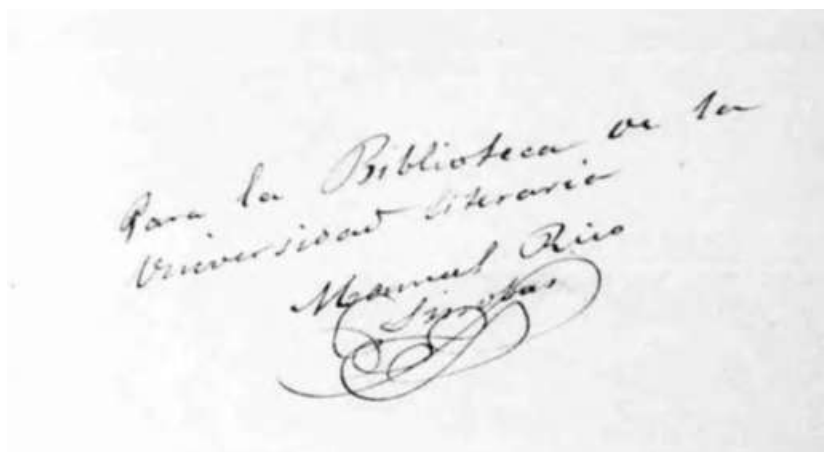 Para la Biblioteca de la
Universidad literaria
Manuel Rico
Sinobas